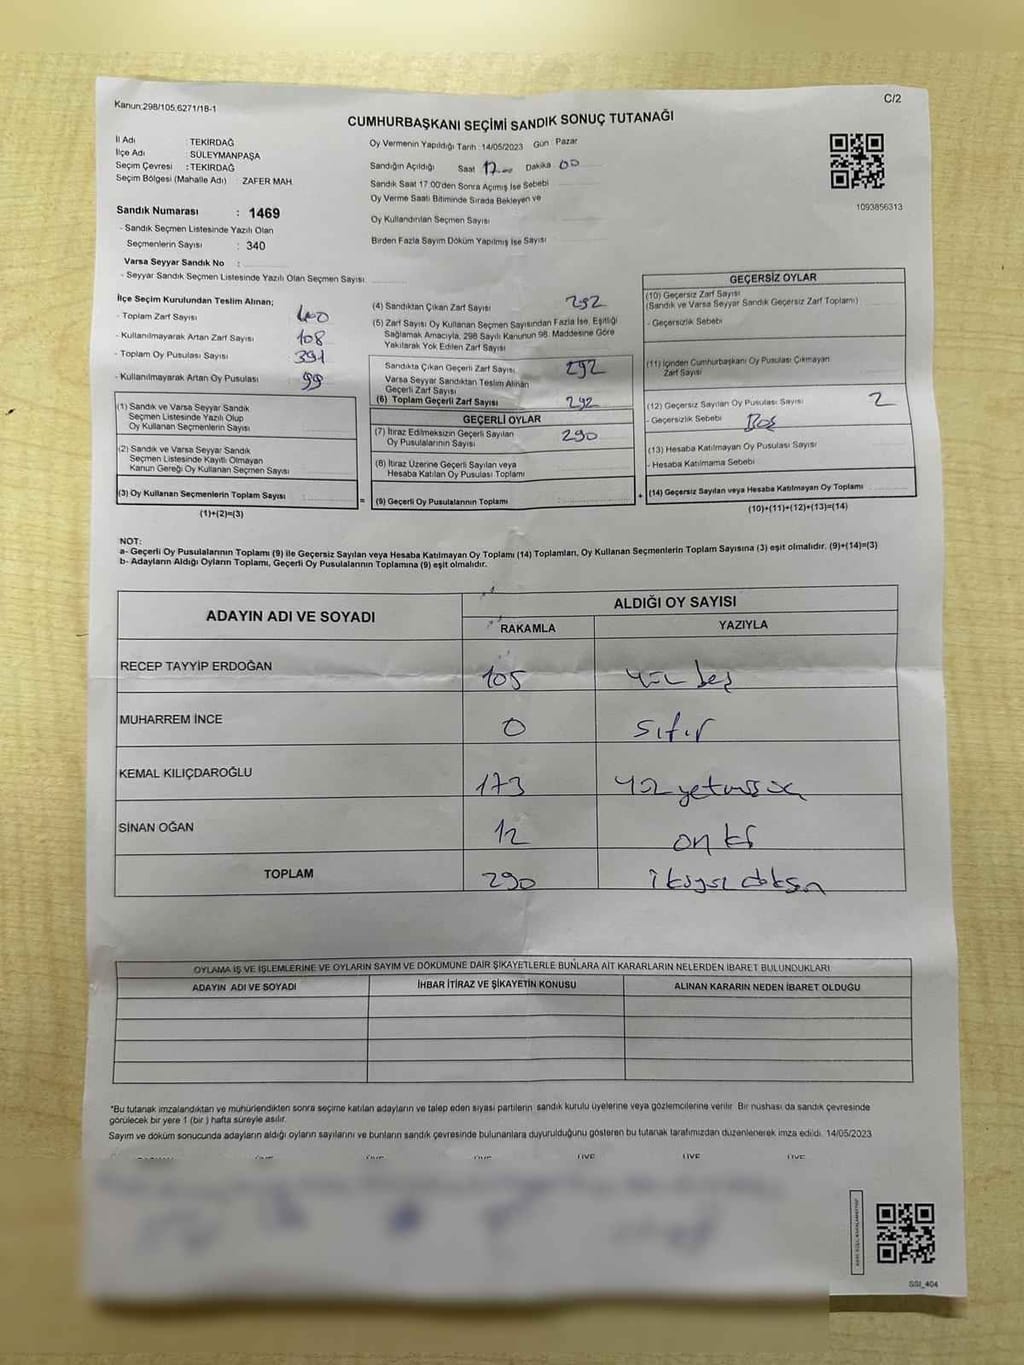 Kanun;298/105,6271/18-1
C/2
CUMHURBAŞKANI SEÇİMİ SANDIK SONUÇ TUTANAĞI
İl Adı : TEKİRDAĞ
İlçe Adı : SÜLEYMANPAŞA
Seçim Çevresi : TEKİRDAĞ
Seçim Bölgesi (Mahalle Adı) : ZAFER MAH.
Sandık Numarası : 1469
- Sandık Seçmen Listesinde Yazılı Olan
Seçmenlerin Sayısı : 340
Varsa Seyyar Sandık No :
- Seyyar Sandık Seçmen Listesinde Yazılı Olan Seçmen Sayısı
Oy Vermenin Yapıldığı Tarih :14/05/2023 Gün : Pazar
Sandığın Açıldığı Saat 17.00 Dakika 00
Sandık Saat 17:00'den Sonra Açımış İse Sebebi
Oy Verme Saati Bitiminde Sırada Bekleyen ve
Oy Kullandırılan Seçmen Sayısı
Birden Fazla Sayım Döküm Yapılmış İse Sayısı
1093856313
İlçe Seçim Kurulundan Teslim Alınan;
- Toplam Zarf Sayısı 400
- Kullanılmayarak Artan Zarf Sayısı 108
- Toplam Oy Pusulası Sayısı 391
- Kullanılmayarak Artan Oy Pusulası 99
(1) Sandık ve Varsa Seyyar Sandık
Seçmen Listesinde Yazılı Olup
Oy Kullanan Seçmenlerin Sayısı
(2) Sandık ve Varsa Seyyar Sandık
Seçmen Listesinde Kayıtlı Olmayan
Kanun Gereği Oy Kullanan Seçmen Sayısı
(3) Oy Kullanan Seçmenlerin Toplam Sayısı
(1)+(2)=(3)
=
(4) Sandıktan Çıkan Zarf Sayısı 292
(5) Zarf Sayısı Oy Kullanan Seçmen Sayısından Fazla İse, Eşitliği
Sağlamak Amacıyla, 298 Sayılı Kanunun 98. Maddesine Göre
Yakılarak Yok Edilen Zarf Sayısı
Sandıkta Çıkan Geçerli Zarf Sayısı 292
Varsa Seyyar Sandıktan Teslim Alınan
Geçerli Zarf Sayısı
(6) Toplam Geçerli Zarf Sayısı 292
GEÇERLİ OYLAR
(7) İtiraz Edilmeksizin Geçerli Sayılan
Oy Pusulalarının Sayısı 290
(8) İtiraz Üzerine Geçerli Sayılan veya
Hesaba Katılan Oy Pusulası Toplamı
(9) Geçerli Oy Pusulalarının Toplamı
+
GEÇERSİZ OYLAR
(10) Geçersiz Zarf Sayısı
(Sandık ve Varsa Seyyar Sandık Geçersiz Zarf Toplamı)
- Geçersizlik Sebebi
(11) İçinden Cumhurbaşkanı Oy Pusulası Çıkmayan
Zarf Sayısı
(12) Geçersiz Sayılan Oy Pusulası Sayısı 2
- Geçersizlik Sebebi Boş
(13) Hesaba Katılmayan Oy Pusulası Sayısı
- Hesaba Katılmama Sebebi
(14) Geçersiz Sayılan veya Hesaba Katılmayan Oy Toplamı
(10)+(11)+(12)+(13)=(14)
NOT:
a- Geçerli Oy Pusulalarının Toplamı (9) ile Geçersiz Sayılan veya Hesaba Katılmayan Oy Toplamı (14) Toplamları, Oy Kullanan Seçmenlerin Toplam Sayısına (3) eşit olmalıdır. (9)+(14)=(3)
b- Adayların Aldığı Oyların Toplamı, Geçerli Oy Pusulalarının Toplamına (9) eşit olmalıdır.
ADAYIN ADI VE SOYADI
ALDIĞI OY SAYISI
RAKAMLA YAZIYLA
RECEP TAYYİP ERDOĞAN 105 yüz beş
MUHARREM İNCE 0 sıfır
KEMAL KILIÇDAROĞLU 173 yüz yetmiş üç
SİNAN OĞAN 12 on iki
TOPLAM 290 ikiyüz doksan
OYLAMA İŞ VE İŞLEMLERİNE VE OYLARIN SAYIM VE DÖKÜMÜNE DAİR ŞİKAYETLERLE BUNLARA AİT KARARLARIN NELERDEN İBARET BULUNDUKLARI
ADAYIN ADI VE SOYADI İHBAR İTİRAZ VE ŞİKAYETİN KONUSU ALINAN KARARIN NEDEN İBARET OLDUĞU
*Bu tutanak imzalandıktan ve mühürlendikten sonra seçime katılan adayların ve talep eden siyasi partilerin sandık kurulu üyelerine veya gözlemcilerine verilir. Bir nüshası da sandık çevresinde
görülecek bir yere 1 (bir ) hafta süreyle asılır.
Sayım ve döküm sonucunda adayların aldığı oyların sayılarını ve bunların sandık çevresinde bulunanlara duyurulduğunu gösteren bu tutanak tarafımızdan düzenlenerek imza edildi. 14/05/2023
ÜYE ÜYE ÜYE ÜYE ÜYE ÜYE
SSI_404